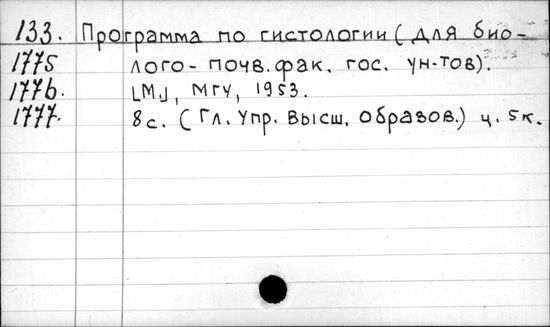 133. Программа по гистологии (для био-
1775 лого-почв. фак. гос. ун-тов).
1776. [М.], МГУ, 1953.
1777. 8с. (Гл. Упр. Высш. образов.) ц. 5к.